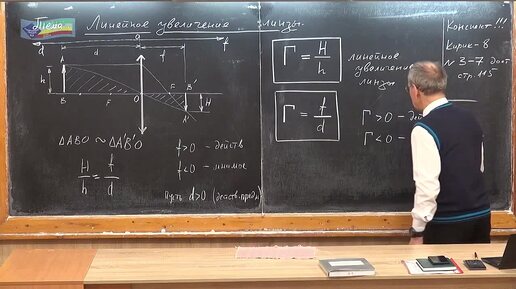 Тема
Линейное увеличение линзы.
d
f
h
A
B
F
O
F
B'
A'
H
ΔABO ~ ΔA'B'O
H/h = f/d
f>0 – действ
f<0 – мнимое
Пусть d>0 (действ.предм
Γ = H/h
линейное
увеличение
линзы
Γ = f/d
Γ>0 – де
Γ<0 –
Конспект!!!
Кирик-8
№ 3-7 дост
стр.115